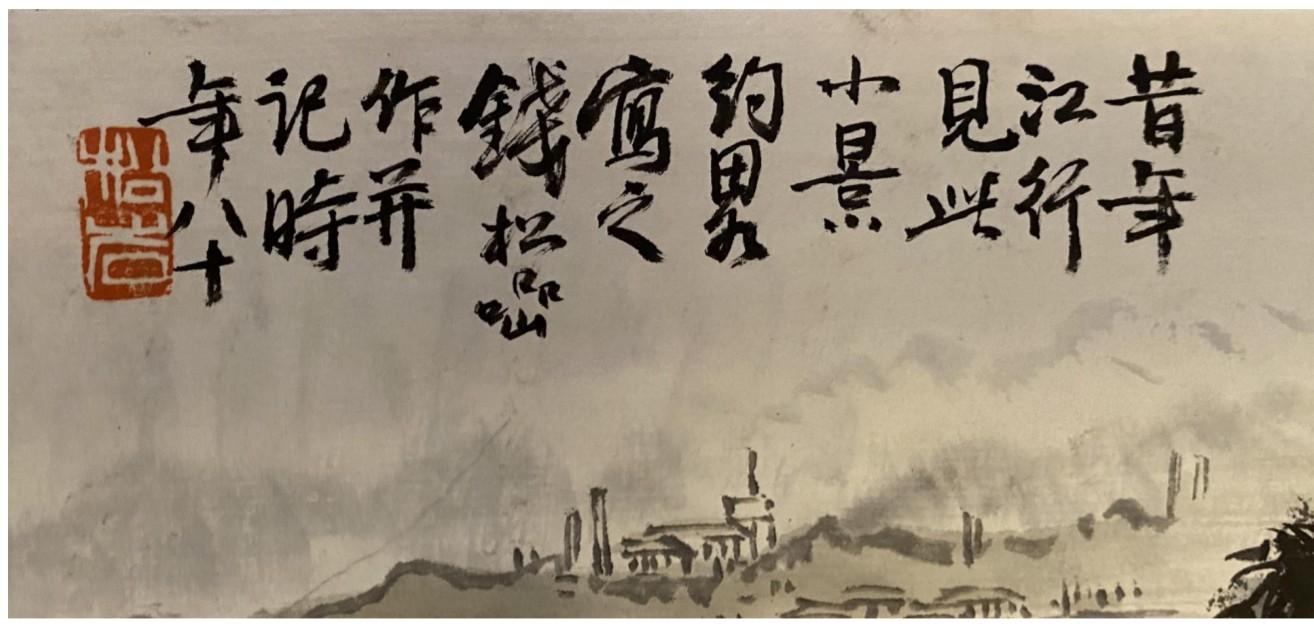 昔年
江行
見此
小景
約畧
寫之
錢松嵒
作并
記時
年八十
松嵒